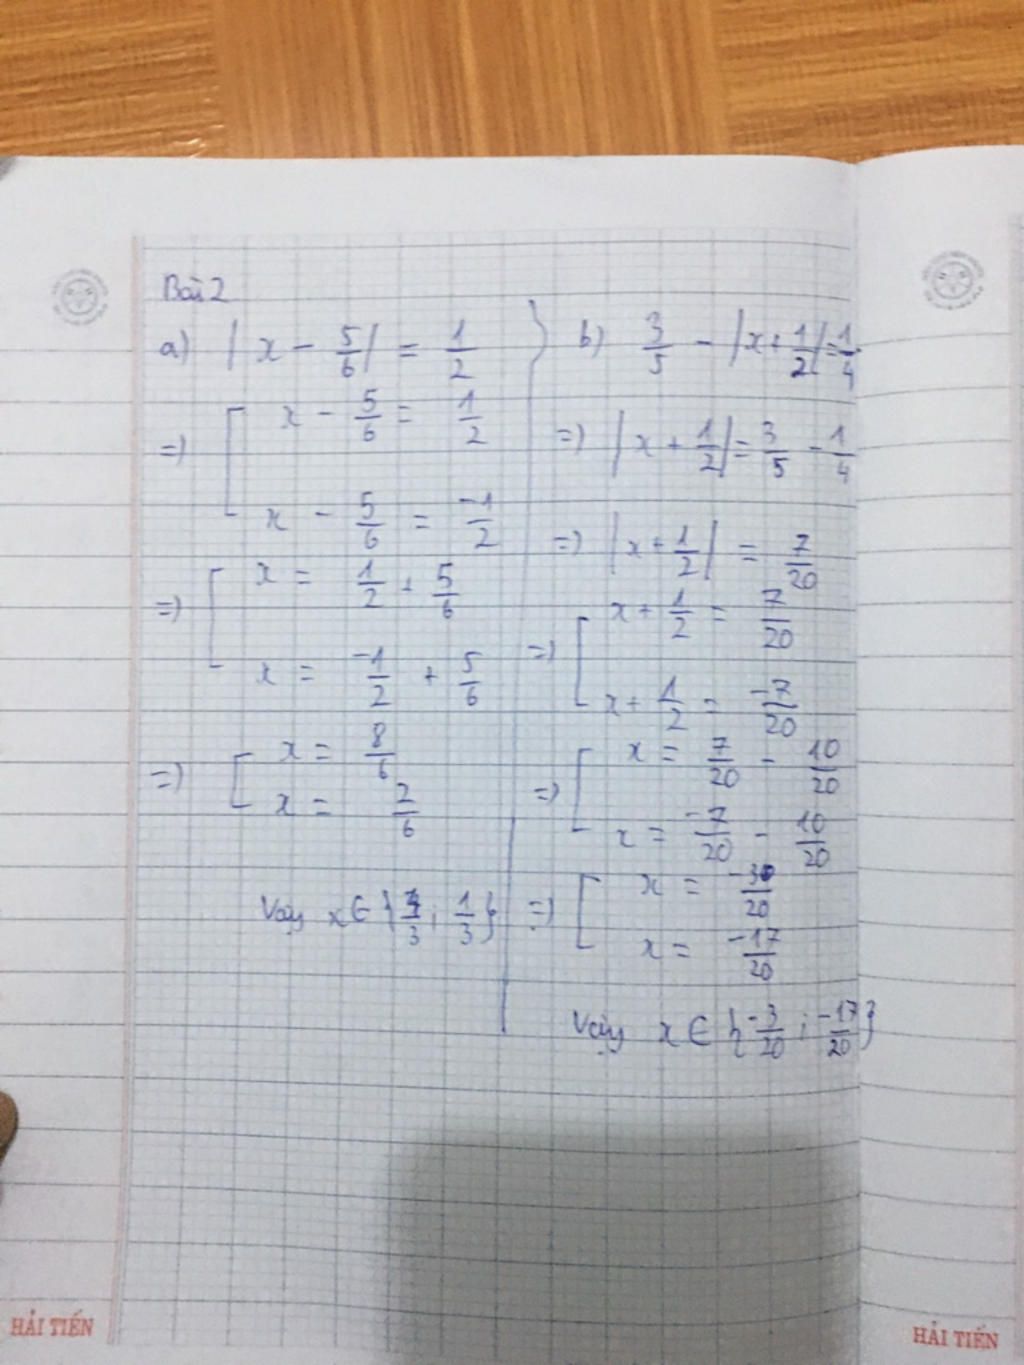 Bài 2
a) | x - 5/6 | = 1/2
=> [ x - 5/6 = 1/2
x - 5/6 = -1/2
=> [ x = 1/2 + 5/6
x = -1/2 + 5/6
=> [ x = 8/6
x = 2/6
Vậy x ∈ { 4/3 ; 1/3 }
b) 3/5 - | x + 1/2 | = 1/4
=> | x + 1/2 | = 3/5 - 1/4
=> | x + 1/2 | = 7/20
=> [ x + 1/2 = 7/20
x + 1/2 = -7/20
=> [ x = 7/20 - 10/20
x = -7/20 - 10/20
=> [ x = -3/20
x = -17/20
Vậy x ∈ { -3/20 ; -17/20 }
HẢI TIẾN
HẢI TIẾN